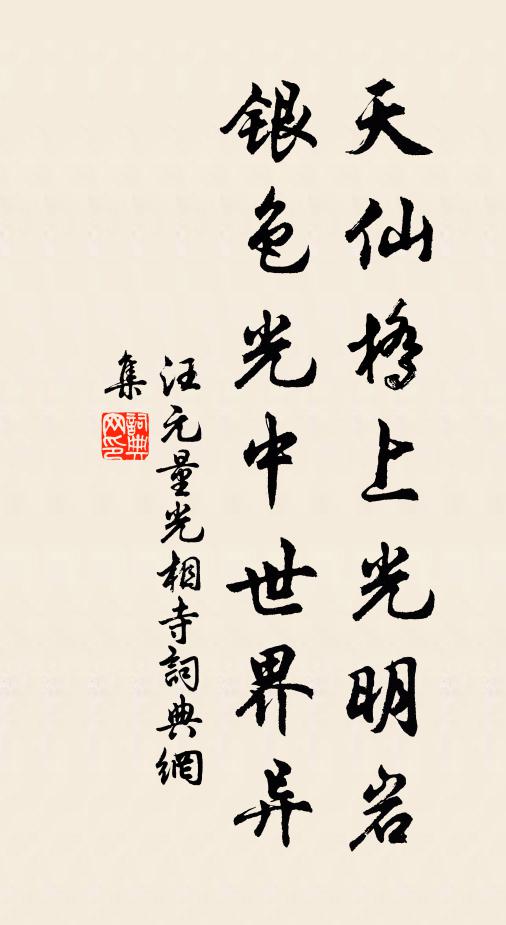 天仙橋上光明岩
銀色光中世界异
汪元量光相寺詞典網
集
詞典
网印